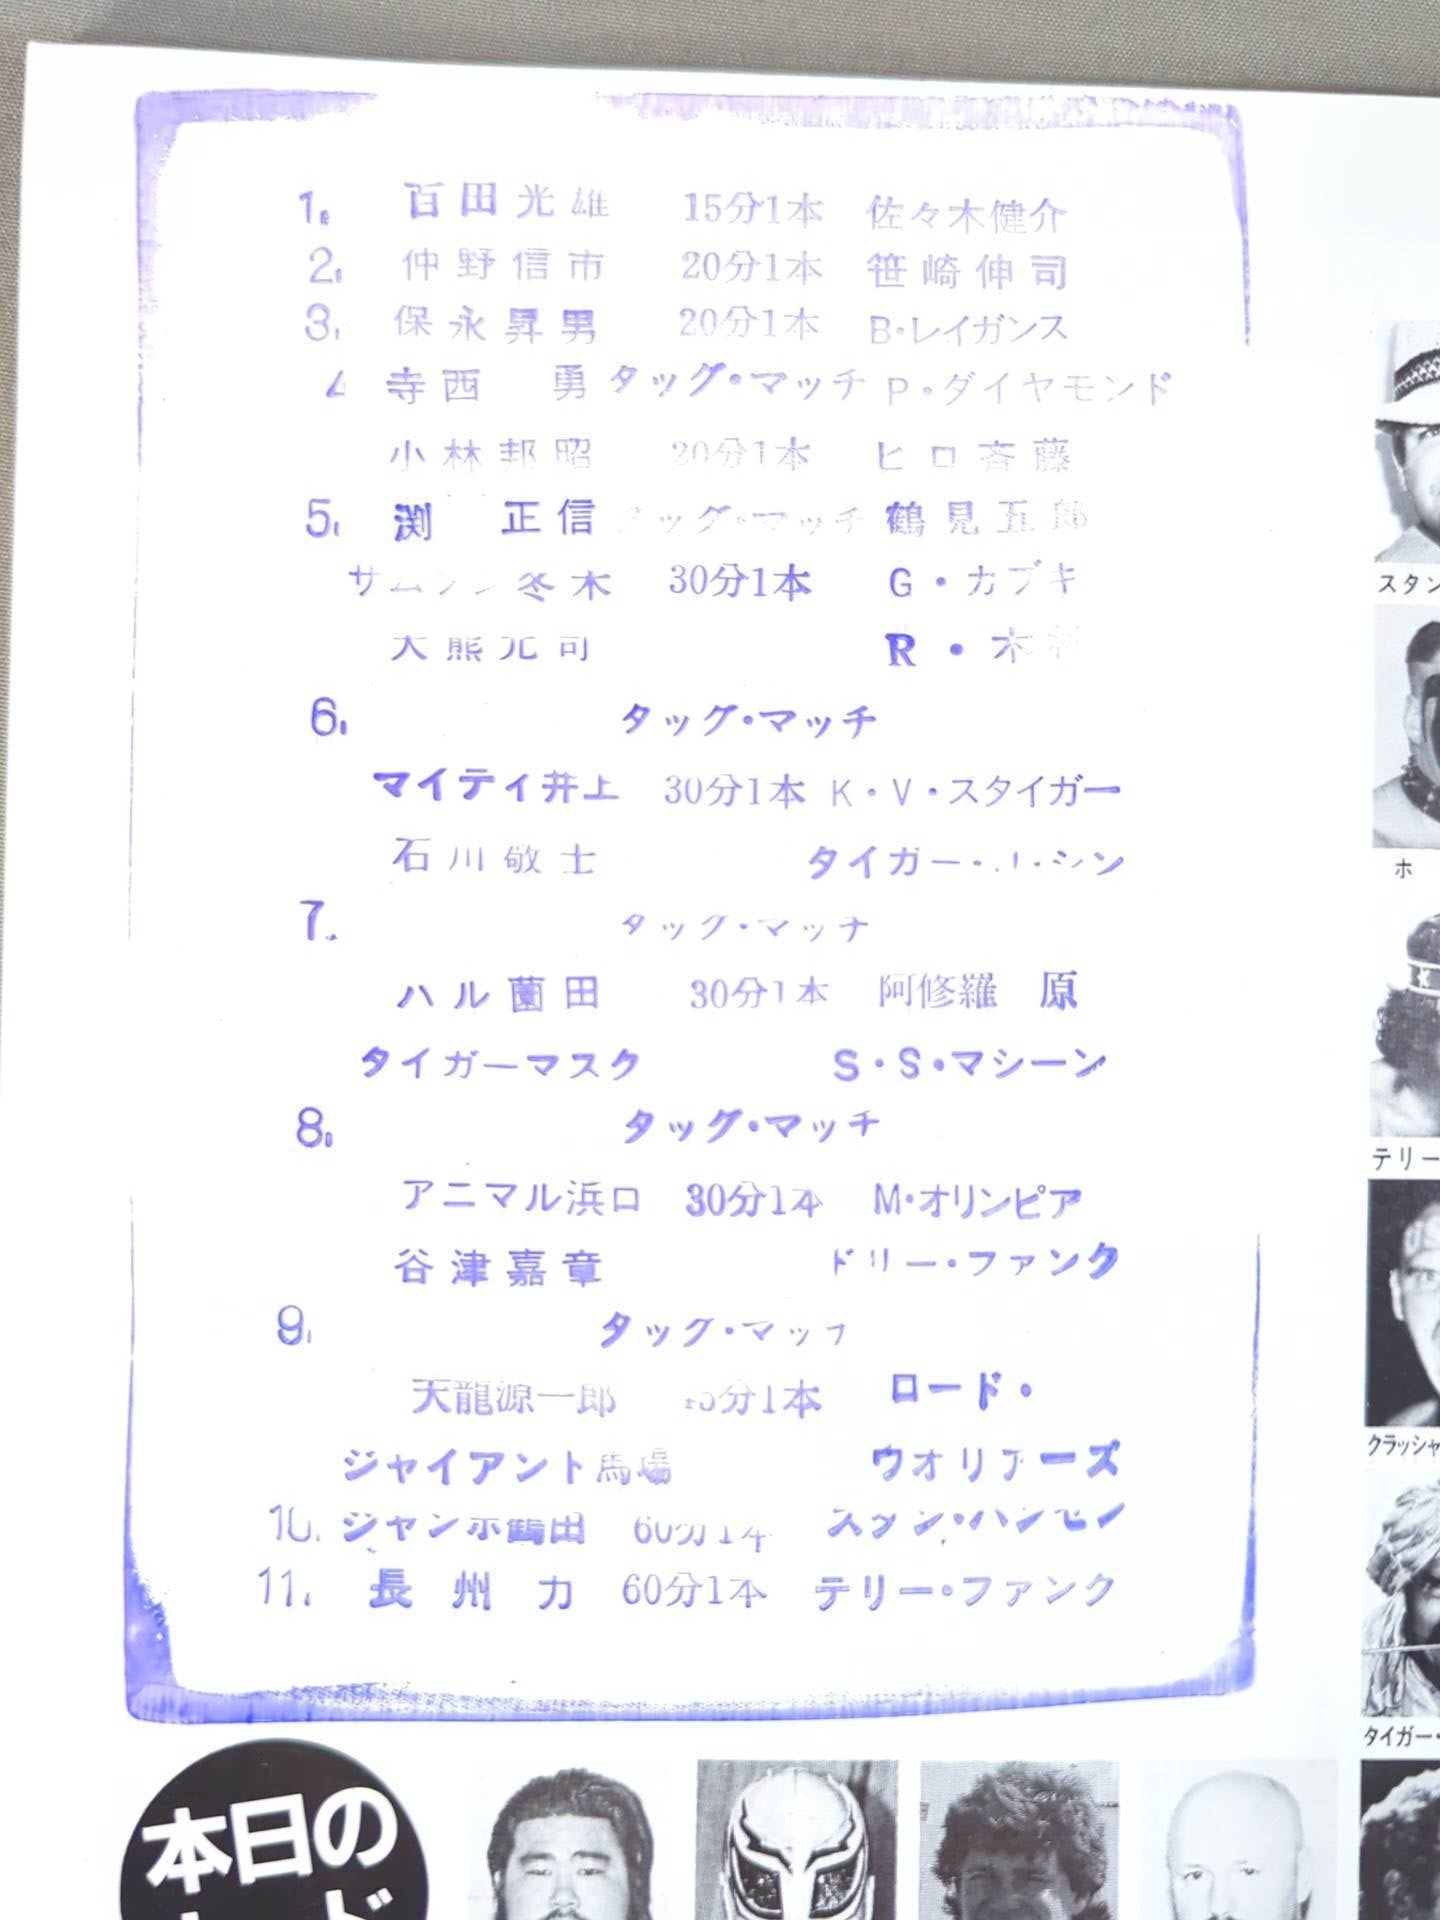 1. 百田光雄 15分1本 佐々木健介
2. 仲野信市 20分1本 笹崎伸司
3. 保永昇男 20分1本 B・レイガンス
4 寺西 勇 タッグ・マッチ P・ダイヤモンド
小林邦昭 20分1本 ヒロ斉藤
5. 渕 正信 タッグ・マッチ 鶴見五郎
サムソン冬木 30分1本 G・カブキ
大熊元司 R・木村
6. タッグ・マッチ
マイティ井上 30分1本 K・V・スタイガー
石川敬士 タイガー・J・シン
7. タッグ・マッチ
ハル薗田 30分1本 阿修羅 原
タイガーマスク S・S・マシーン
8. タッグ・マッチ
アニマル浜口 30分1本 M・オリンピア
谷津嘉章 ドリー・ファンク
9. タッグ・マッチ
天龍源一郎 分1本 ロード・
ジャイアント馬場 ウォリアーズ
10. ジャンボ鶴田 60分1本 スタン・ハンセン
11. 長州 力 60分1本 テリー・ファンク
スタン
ホ
テリー
クラッシャ
タイガー・
本日の